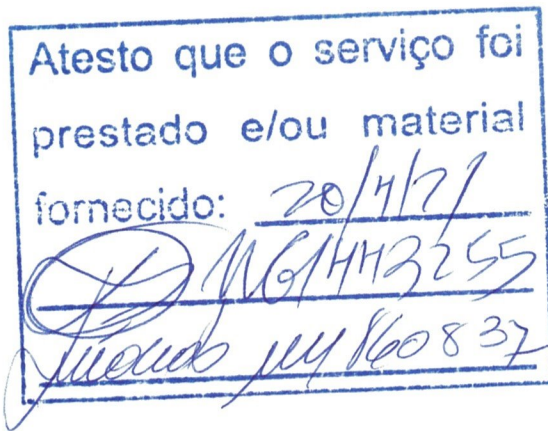 Atesto que o serviço foi
prestado e/ou material
fornecido: 20/4/21
MG1443255
860837